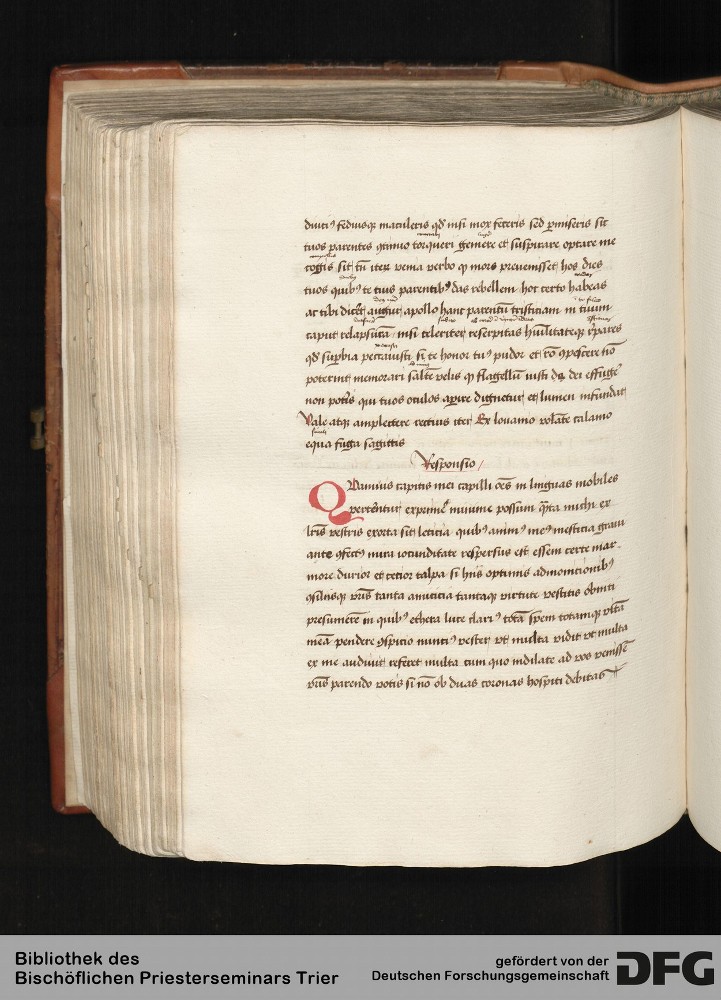 diuiciis feduisque maculeris qd nisi mox feceris sed pmiseris sic
tuos parentes qtinuo torqueri gemere et suspirare optare me
cogis sit tn iter venia verbo qp mors preuenisset hos dies
tuos quib9 te tuis parentib9 das rebellem hoc certo habeas
ac tibi dicet augur apollo hanc parentu tristiciam in tuum
caput relapsura nisi celeriter reserpitas huilitateqz rpares
qd supbia peccauisti si te honor tu9 pudor et ro
poterint memorari salte velis qp flagellu iusti dei effuge
non potis qui tuos oculos apire dignetur et lumen infundat
Vale atqz amplectere rectius iter Ex louanio volate calamo
equa fuga sagittis
Responsio
Quamuis capitis mei capilli oes in linguas mobiles
verterentur exprime minime possum qta michi ex
lris vestris exorta sit leticia quib9 anim9 me9 mesticia graui
ante qfect9 mira iocunditate respersus est essem certe mar
more durior et cecior talpa si hiis optimis admonicionib9
qsiliisqz vris tanta amicicia tantaqz virtute vestitis obniti
presumere in quib9 ethera luce clari9 tota spem totamqz vita
mea pendere qspicio nunci9 vester vt multa vidit vt multa
ex me audiuit referet multa cum quo indilate ad vos venisse
vris parendo votis si no ob duas coronas hospiti debitas
Bibliothek des
Bischöflichen Priesterseminars Trier
gefördert von der
Deutschen Forschungsgemeinschaft
DFG